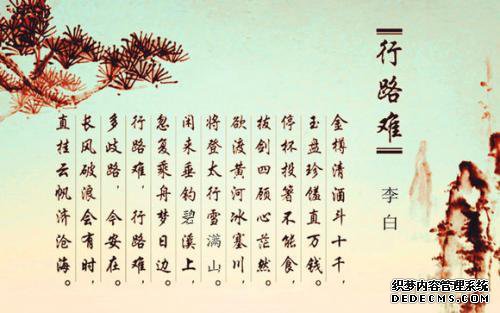 行路难
李白
金樽清酒斗十千，
玉盘珍馐直万钱。
停杯投箸不能食，
拔剑四顾心茫然。
欲渡黄河冰塞川，
将登太行雪满山。
闲来垂钓碧溪上，
忽复乘舟梦日边。
行路难，行路难，
多歧路，今安在。
长风破浪会有时，
直挂云帆济沧海。
织梦内容管理系统
DEDECMS.COM